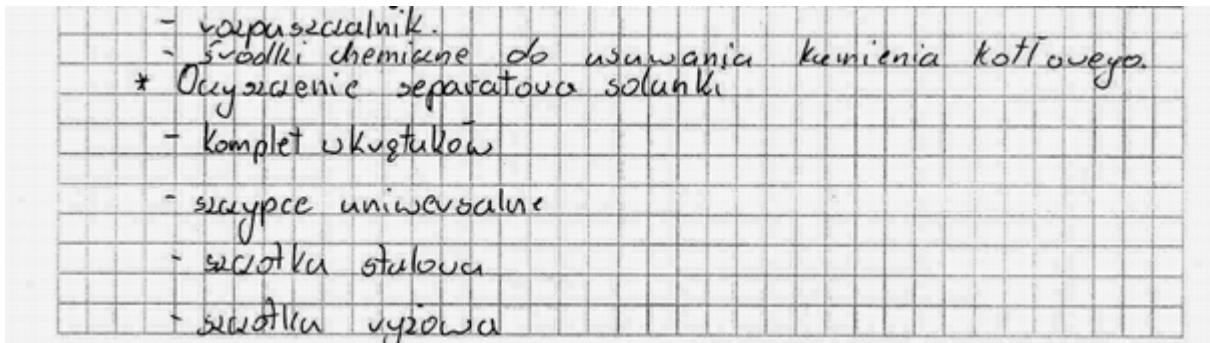 - rozpuszczalnik.
- środki chemiczne do usuwania kamienia kotłowego.
* Oczyszczenie separatora solanki
- komplet wkrętaków
- szczypce uniwersalne
- szczotka stalowa
- szczotka ryżowa